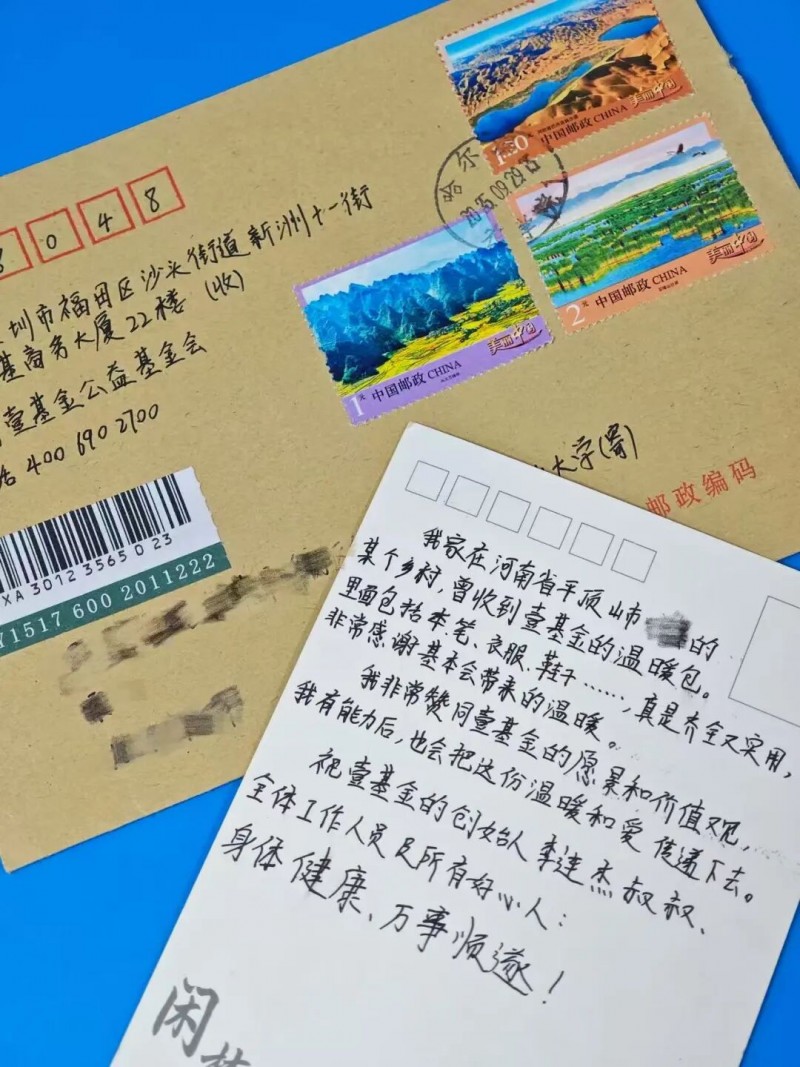 8048
圳市福田区沙头街道新洲十一街
基商务大厦22楼 (收)
壹基金公益基金会
话 400 690 2700
XA 3012356502 3
1517 600 2011222
1.50元 中国邮政 CHINA
美丽中国
哈尔
2025.09.29
2元 中国邮政 CHINA
美丽中国
1元 中国邮政 CHINA
美丽中国
大学(寄)
邮政编码
我家在河南省平顶山市 的
某个乡村,曾收到壹基金的温暖包。
里面包括本笔、衣服、鞋子……,真是齐全又实用,
非常感谢基本会带来的温暖。
我非常赞同壹基金的愿景和价值观,
我有能力后,也会把这份温暖和爱传递下去。
祝壹基金的创始人李连杰叔叔、
全体工作人员及所有好心人:
身体健康、万事顺遂!
闲